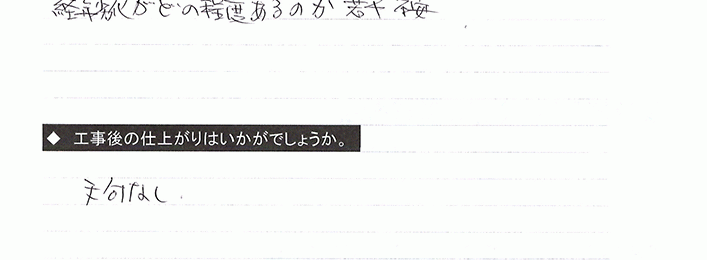 経年劣化がどの程度あるのか若干不安
◆ 工事後の仕上がりはいかがでしょうか。
文句なし.